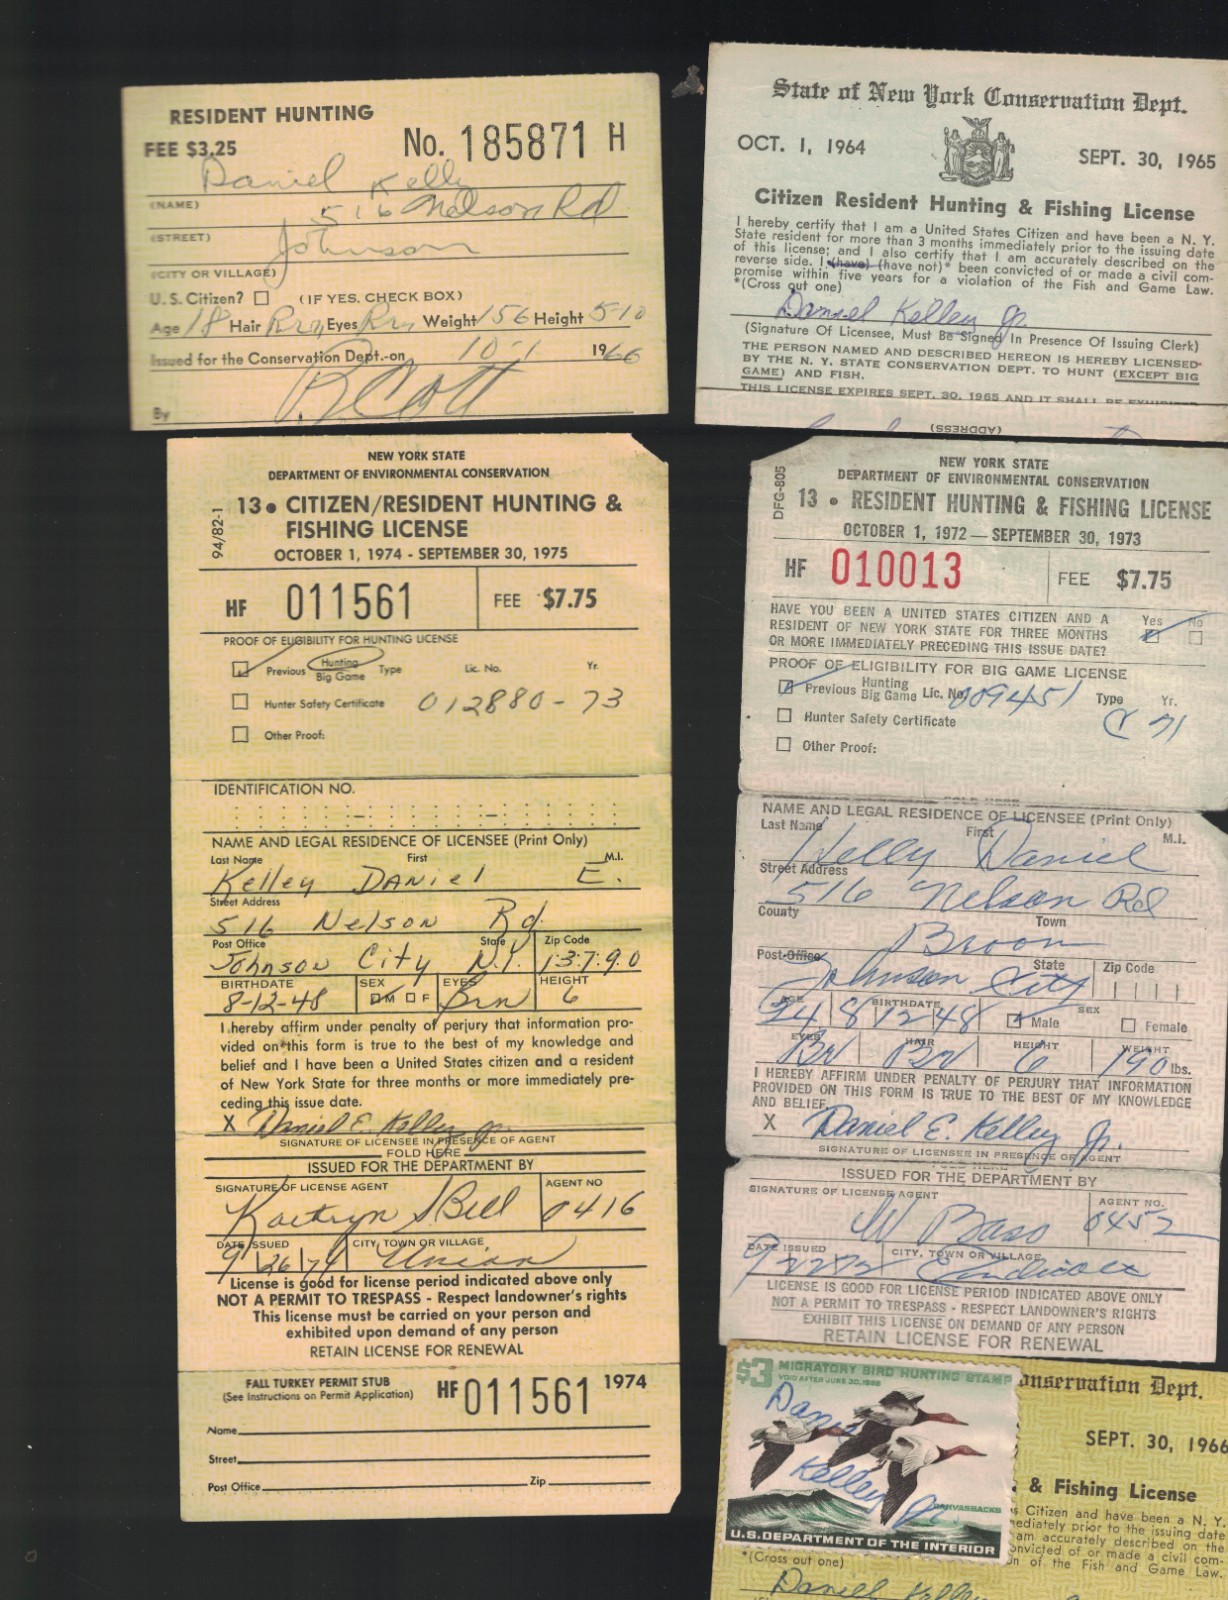 RESIDENT HUNTING
FEE $3.25
No. 185871 H
Daniel Kelly
(NAME)
516 Nelson Rd
(STREET)
Johnson
(CITY OR VILLAGE)
U.S. Citizen? (IF YES, CHECK BOX)
Age 18 Hair Brn Eyes Brn Weight 156 Height 5-10
Issued for the Conservation Dept.-on 10-1 1966
By
State of New York Conservation Dept.
OCT. 1, 1964
SEPT. 30, 1965
Citizen Resident Hunting & Fishing License
I hereby certify that I am a United States Citizen and have been a N. Y.
State resident for more than 3 months immediately prior to the issuing date
of this license; and I also certify that I am accurately described on the
reverse side. I (have) (have not)* been convicted of or made a civil com-
promise within five years for a violation of the Fish and Game Law.
*(Cross out one)
Daniel Kelley Jr.
(Signature Of Licensee, Must Be Signed In Presence Of Issuing Clerk)
THE PERSON NAMED AND DESCRIBED HEREON IS HEREBY LICENSED
BY THE N. Y. STATE CONSERVATION DEPT. TO HUNT (EXCEPT BIG
GAME) AND FISH.
THIS LICENSE EXPIRES SEPT. 30, 1965 AND IT SHALL BE EXHIBITED
(ADDRESS)
NEW YORK STATE
DEPARTMENT OF ENVIRONMENTAL CONSERVATION
94/82-1
13 • CITIZEN/RESIDENT HUNTING &
FISHING LICENSE
OCTOBER 1, 1974 - SEPTEMBER 30, 1975
HF 011561 FEE $7.75
PROOF OF ELIGIBILITY FOR HUNTING LICENSE
Previous Hunting Big Game Type Lic. No. Yr.
Hunter Safety Certificate 012880-73
Other Proof:
IDENTIFICATION NO.
NAME AND LEGAL RESIDENCE OF LICENSEE (Print Only)
Last Name First M.I.
Kelley Daniel E.
Street Address
516 Nelson Rd.
Post Office State Zip Code
Johnson City N.Y. 13790
BIRTHDATE SEX EYES HEIGHT
8-12-48 M F Brn 6
I hereby affirm under penalty of perjury that information pro-
vided on this form is true to the best of my knowledge and
belief and I have been a United States citizen and a resident
of New York State for three months or more immediately pre-
ceding this issue date.
X Daniel E. Kelley Jr.
SIGNATURE OF LICENSEE IN PRESENCE OF AGENT
FOLD HERE
ISSUED FOR THE DEPARTMENT BY
SIGNATURE OF LICENSE AGENT AGENT NO
Kathryn Bell 0416
DATE ISSUED CITY, TOWN OR VILLAGE
9 26 74 Union
License is good for license period indicated above only
NOT A PERMIT TO TRESPASS - Respect landowner's rights
This license must be carried on your person and
exhibited upon demand of any person
RETAIN LICENSE FOR RENEWAL
FALL TURKEY PERMIT STUB
(See Instructions on Permit Application)
HF 011561 1974
Name
Street
Post Office Zip
NEW YORK STATE
DEPARTMENT OF ENVIRONMENTAL CONSERVATION
DFG-805
13 • RESIDENT HUNTING & FISHING LICENSE
OCTOBER 1, 1972 — SEPTEMBER 30, 1973
HF 010013 FEE $7.75
HAVE YOU BEEN A UNITED STATES CITIZEN AND A
RESIDENT OF NEW YORK STATE FOR THREE MONTHS
OR MORE IMMEDIATELY PRECEDING THIS ISSUE DATE?
Yes No
PROOF OF ELIGIBILITY FOR BIG GAME LICENSE
Previous Hunting Big Game Lic. No. 009451 Type Yr.
71
Hunter Safety Certificate
Other Proof:
FOLD HERE
NAME AND LEGAL RESIDENCE OF LICENSEE (Print Only)
Last Name First M.I.
Kelly Daniel
Street Address
516 Nelson Rd
County Town
Broom
Post Office State Zip Code
Johnson City
AGE BIRTHDATE SEX
24 8 12 48 Male Female
EYES HAIR HEIGHT WEIGHT
Br Br 6 190 lbs.
I HEREBY AFFIRM UNDER PENALTY OF PERJURY THAT INFORMATION
PROVIDED ON THIS FORM IS TRUE TO THE BEST OF MY KNOWLEDGE
AND BELIEF.
X Daniel E. Kelley Jr.
SIGNATURE OF LICENSEE IN PRESENCE OF AGENT
FOLD HERE
ISSUED FOR THE DEPARTMENT BY
SIGNATURE OF LICENSE AGENT AGENT NO.
W Bass 0452
DATE ISSUED CITY, TOWN OR VILLAGE
9 22 72 Endicott
LICENSE IS GOOD FOR LICENSE PERIOD INDICATED ABOVE ONLY
NOT A PERMIT TO TRESPASS - RESPECT LANDOWNER'S RIGHTS
EXHIBIT THIS LICENSE ON DEMAND OF ANY PERSON
RETAIN LICENSE FOR RENEWAL
$3 MIGRATORY BIRD HUNTING STAMP
VOID AFTER JUNE 30, 1966
Daniel
Kelley Jr.
CANVASBACKS
U.S. DEPARTMENT OF THE INTERIOR
onservation Dept.
SEPT. 30, 1966
& Fishing License
s Citizen and have been a N. Y.
mediately prior to the issuing date
am accurately described on the
onvicted of or made a civil com-
on of the Fish and Game Law.
*(Cross out one)
Daniel Kelley